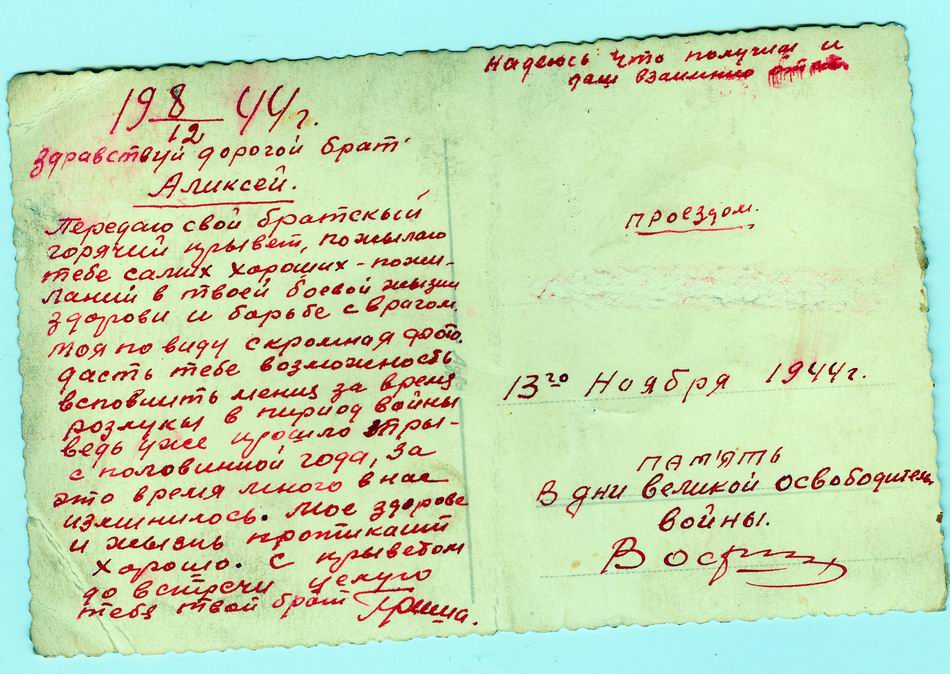 19 8/12 44 г.
Здравствуй дорогой брат
Аликсей.
Передаю свой братскый
горячий крывет, пожылаю
тебе самих хороших - пожи-
ланий в твоей боевой жызни
здорови и борьбе с врагом.
Моя по виду скромная фото.
дасть тебе возможность
вспомнить меня за время
розлукы в период войны
ведь уже прошло тры-
с половинной года, за
это время много в нас
изминилось. Мое здорове
и жызнь протикаит
хорошо. С крыветом
до встречи целую
тебя твой брат Гриша.
Надеюсь что получиш и
даш взаимно
проездом.
13го Ноября 1944г.
ПАМ'ЯТЬ
В дни великой освободитель
войны.